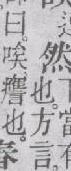 下當有
然也。方言
曰。唉。譍也。
春